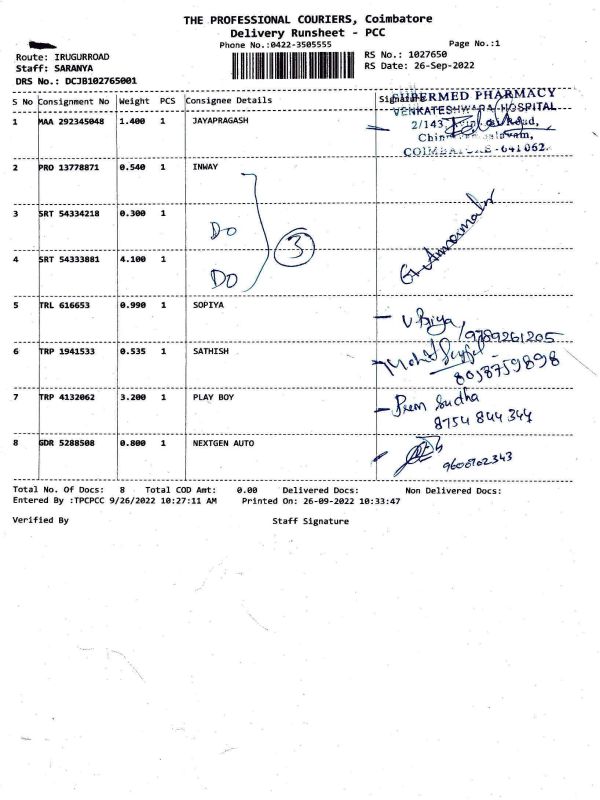 THE PROFESSIONAL COURIERS, Coimbatore
Delivery Runsheet - PCC
Phone No.:0422-3505555
Page No.:1
Route: IRUGURROAD
RS No.: 1027650
Staff: SARANYA
RS Date: 26-Sep-2022
DRS No.: DCJB102765001
S No Consignment No Weight PCS Consignee Details Signature
SUPERMED PHARMACY
VENKATESHWARA HOSPITAL
1 MAA 292345048 1.400 1 JAYAPRAGASH
2/143, Road,
COIMBATORE - 641 062.
2 PRO 13778871 0.540 1 INWAY
3 SRT 54334218 0.300 1 DO
3
4 SRT 54333881 4.100 1 DO
5 TRL 616653 0.990 1 SOPIYA
V. Priya
9789261205
6 TRP 1941533 0.535 1 SATHISH
8098759898
7 TRP 4132062 3.200 1 PLAY BOY
Prem Sudha
8754 844 344
8 GDR 5288508 0.800 1 NEXTGEN AUTO
Total No. Of Docs: 8 Total COD Amt: 0.00 Delivered Docs: Non Delivered Docs:
Entered By :TPCPCC 9/26/2022 10:27:11 AM Printed On: 26-09-2022 10:33:47
Verified By Staff Signature